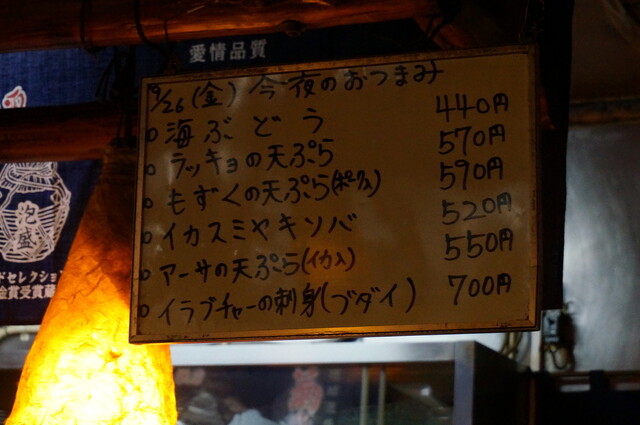 愛情品質
9/26(金) 今夜のおつまみ
海ぶどう 440円
ラッキョの天ぷら 570円
もずくの天ぷら(ポーク入) 590円
イカスミヤキソバ 520円
アーサの天ぷら(イカ入) 550円
イラブチャーの刺身(ブダイ) 700円
泡盛
ドセレクショ
金賞受賞蔵